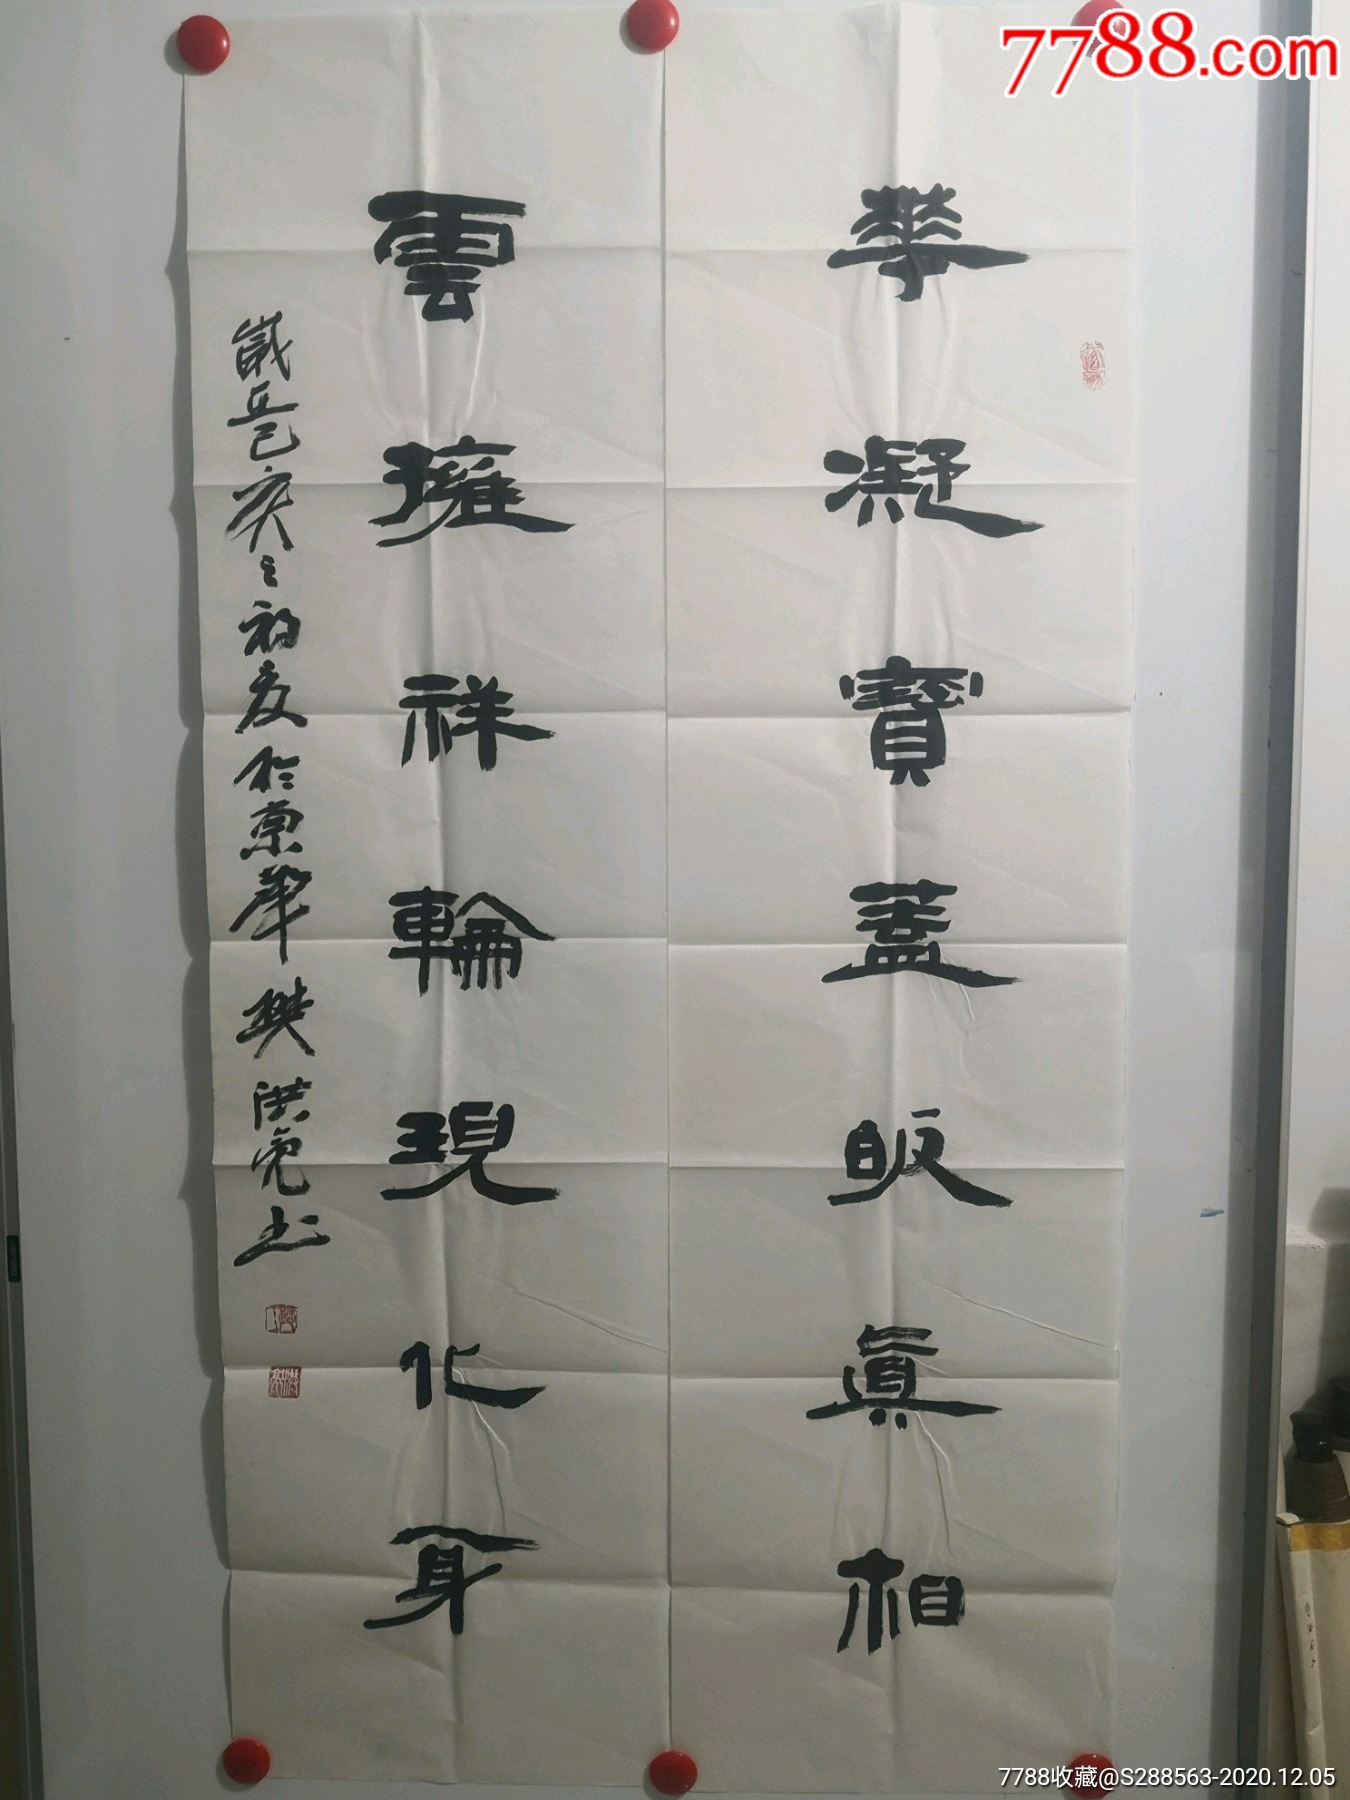 7788.com
華凝寶蓋皈真相
雲擁祥輪現化身
歲在己亥之初夏於京華樊洪亮书
7788收藏@S288563-2020.12.05